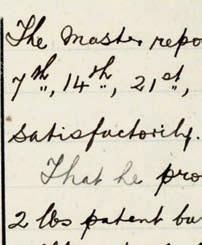 The Master repo
7th, 14th, 21st,
satisfactorily.
That he pro
2 lbs patent ba